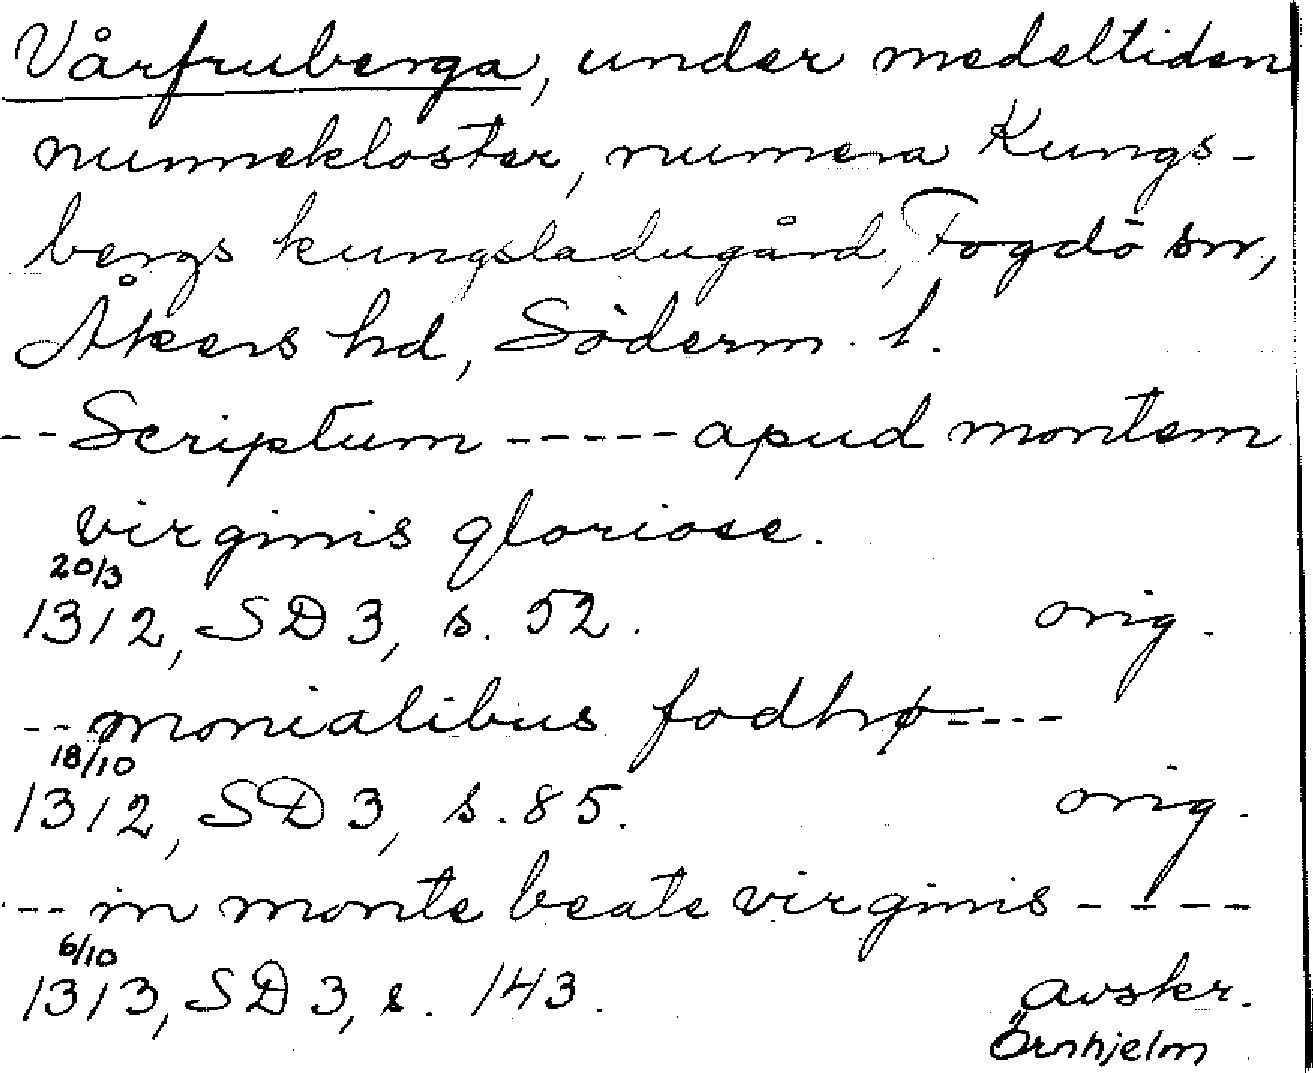 Vårfruberga, under medeltiden
nunnekloster, numera Kungs-
bergs kungsladugård, Fogdö sn,
Åkers hd, Söderm. l.
-- Scriptum ----- apud montem
virginis gloriose.
20/3
1312, SD 3, s. 52. orig.
-- monialibus fodhrø ----
18/10
1312, SD 3, s. 85. orig.
--- in monte beate virginis ----
6/10
1313, SD 3, s. 143. avskr.
Örnhjelm